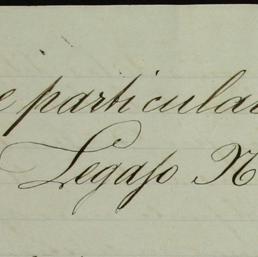 e particular
Legajo N